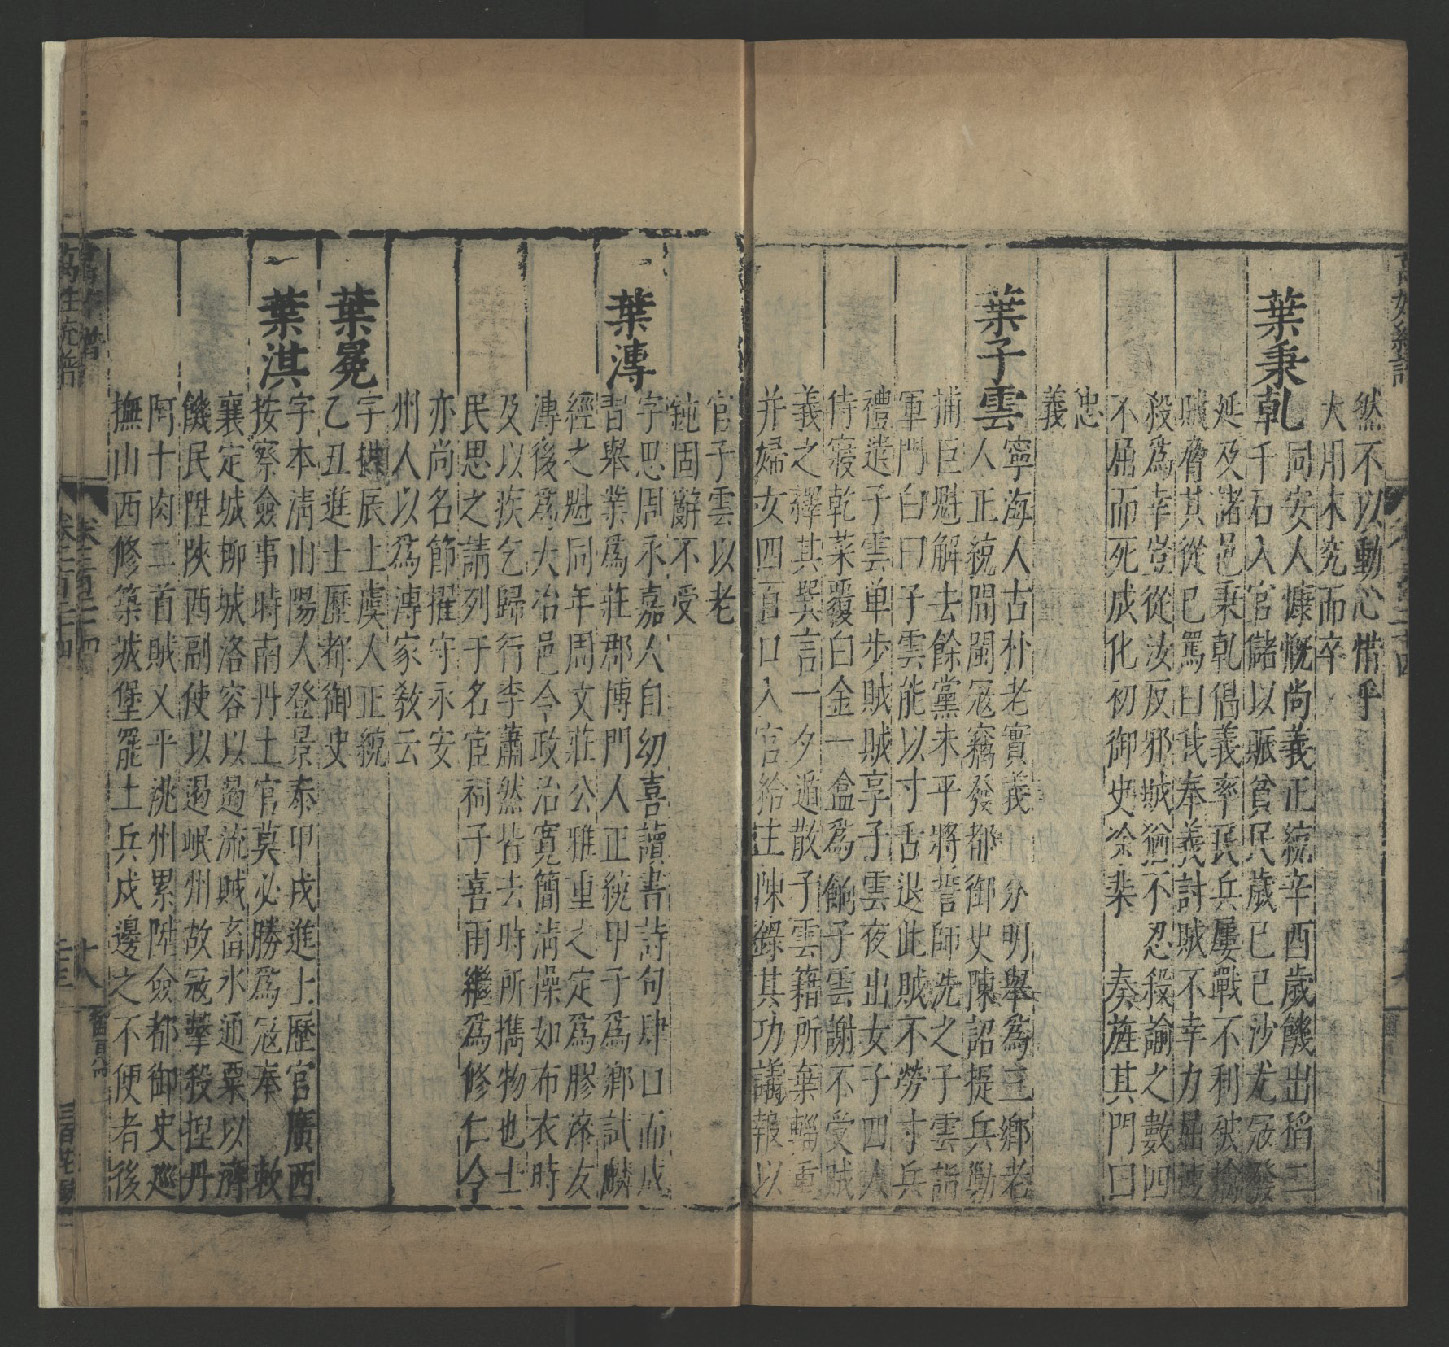 然不以動心惜乎
大用未究而卒
葉秉乾
同安人慷慨尚義正統辛酉歲饑出稻二
千石入官儲以賑貧民歲己巳沙尤寇發
延及諸邑秉乾倡義率民兵屢戰不利被擒
賊脅其從已罵曰我奉義討賊不幸力屈
殺為幸豈從汝反邪賊猶不忍殺諭之數四
不屈而死成化初御史涂棐 奏旌其門曰
忠
義
葉子雲
寧海人古朴老實義 分明舉為三鄉老
人正統間閩寇竊發都御史陳詔提兵勦
捕巨魁解去餘黨未平將誓師洗之子雲詣
軍門白曰子雲能以寸舌退此賊不勞寸兵
禮遣子雲单步賊賊享子雲夜出女子四人
侍寢乾菜覆白金一盒為餽子雲謝不受賊
義之釋其異言一夕遁散子雲籍所棄輜重
并婦女四百口入官給主陳錄其功議報以
官子雲以老
鈍固辭不受
葉溥
字思周永嘉人自幼喜讀書詩句肆口而成
習舉業為莊郡博門人正統甲子為鄉試麟
經之魁同年周文莊公雅重之定為膠漆友
溥後為大冶邑令政治寬簡清操如布衣時
及以疾乞歸行李蕭然皆去時所擕物也士
民思之請列于名宦祠子喜雨繼為修仁令
亦尚名節擢守永安
州人以為溥家敎云
葉冕
字拱辰上虞人正統
乙丑進士歷都御史
葉淇
字本清山陽人登景泰甲戌進士歷官廣西
按察僉事時南丹土官莫必勝為寇奉 敕
襄定城柳城洛容以遏流賊畜水通粟以濟
饑民陞陜西副使以遏岷州故寇擊殺捏丹
阿十肉二首賊又平洮州累陞僉都御史巡
撫山西修築城堡罷土兵戍邊之不便者後